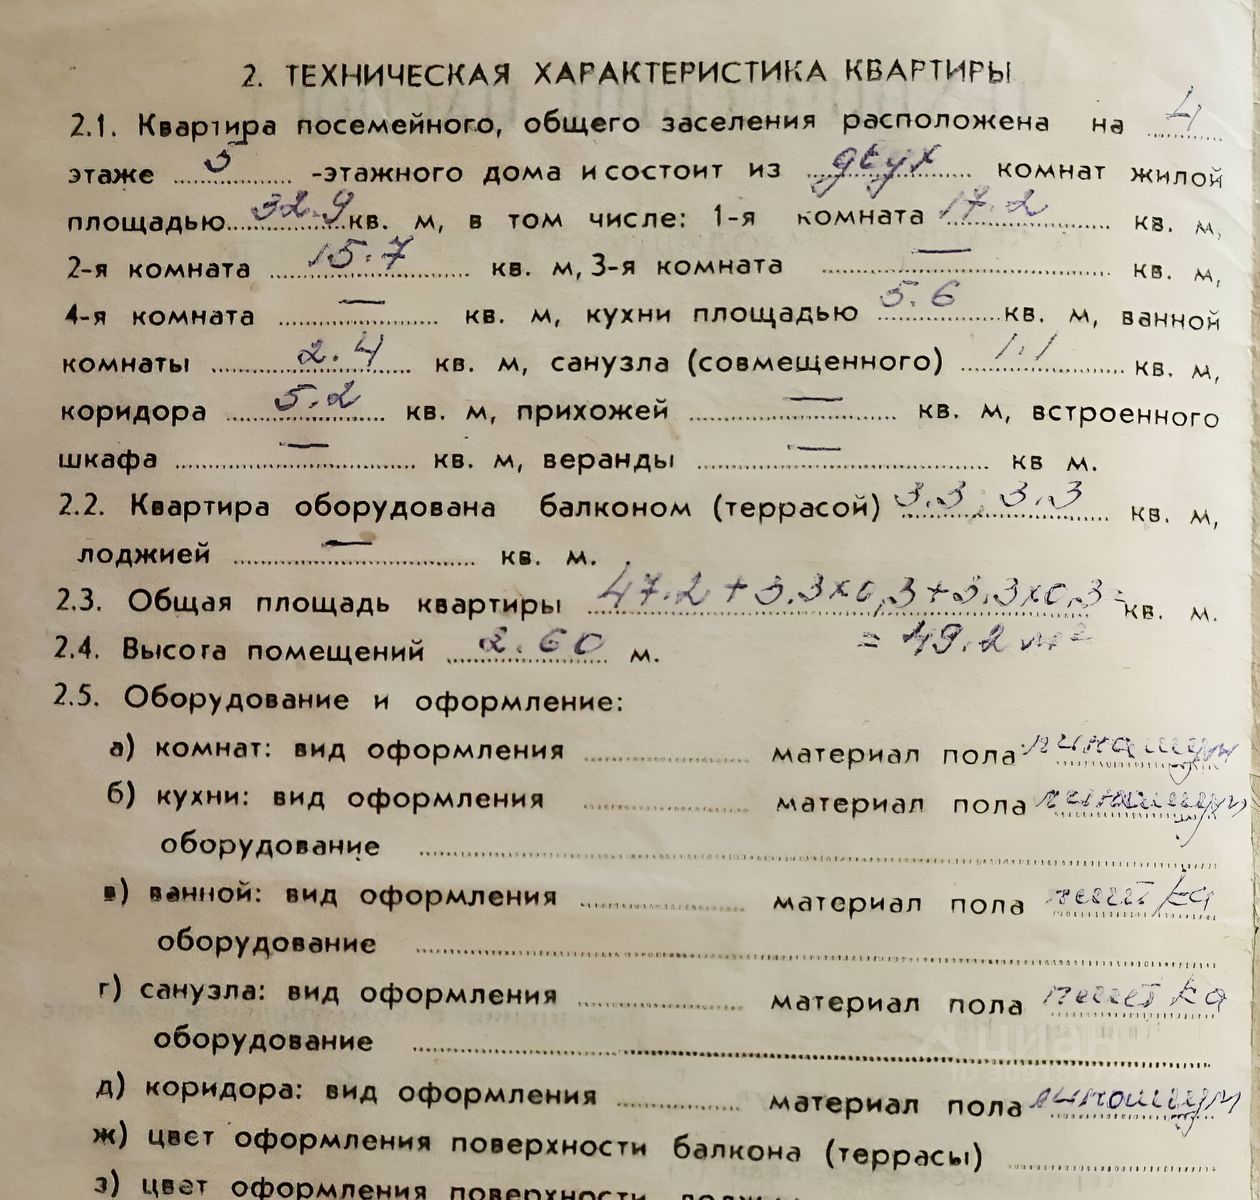 2. ТЕХНИЧЕСКАЯ ХАРАКТЕРИСТИКА КВАРТИРЫ
2.1. Квартира посемейного, общего заселения расположена на 4
этаже 5 -этажного дома и состоит из двух комнат жилой
площадью 32.9 кв. м, в том числе: 1-я комната 17.2 кв. м,
2-я комната 15.7 кв. м, 3-я комната — кв. м,
4-я комната — кв. м, кухни площадью 5.6 кв. м, ванной
комнаты 2.4 кв. м, санузла (совмещенного) 1.1 кв. м,
коридора 5.2 кв. м, прихожей — кв. м, встроенного
шкафа — кв. м, веранды — кв м.
2.2. Квартира оборудована балконом (террасой) 3.3; 3.3 кв. м,
лоджией — кв. м.
2.3. Общая площадь квартиры 47.2 + 3.3х0,3 + 3.3х0,3 = кв. м.
= 49.2 м²
2.4. Высота помещений 2.60 м.
2.5. Оборудование и оформление:
а) комнат: вид оформления материал пола линолеум
б) кухни: вид оформления материал пола линолеум
оборудование
в) ванной: вид оформления материал пола плитка
оборудование
г) санузла: вид оформления материал пола плитка
оборудование
циан
д) коридора: вид оформления материал пола линолеум
ж) цвет оформления поверхности балкона (террасы)
з) цвет оформления поверхности